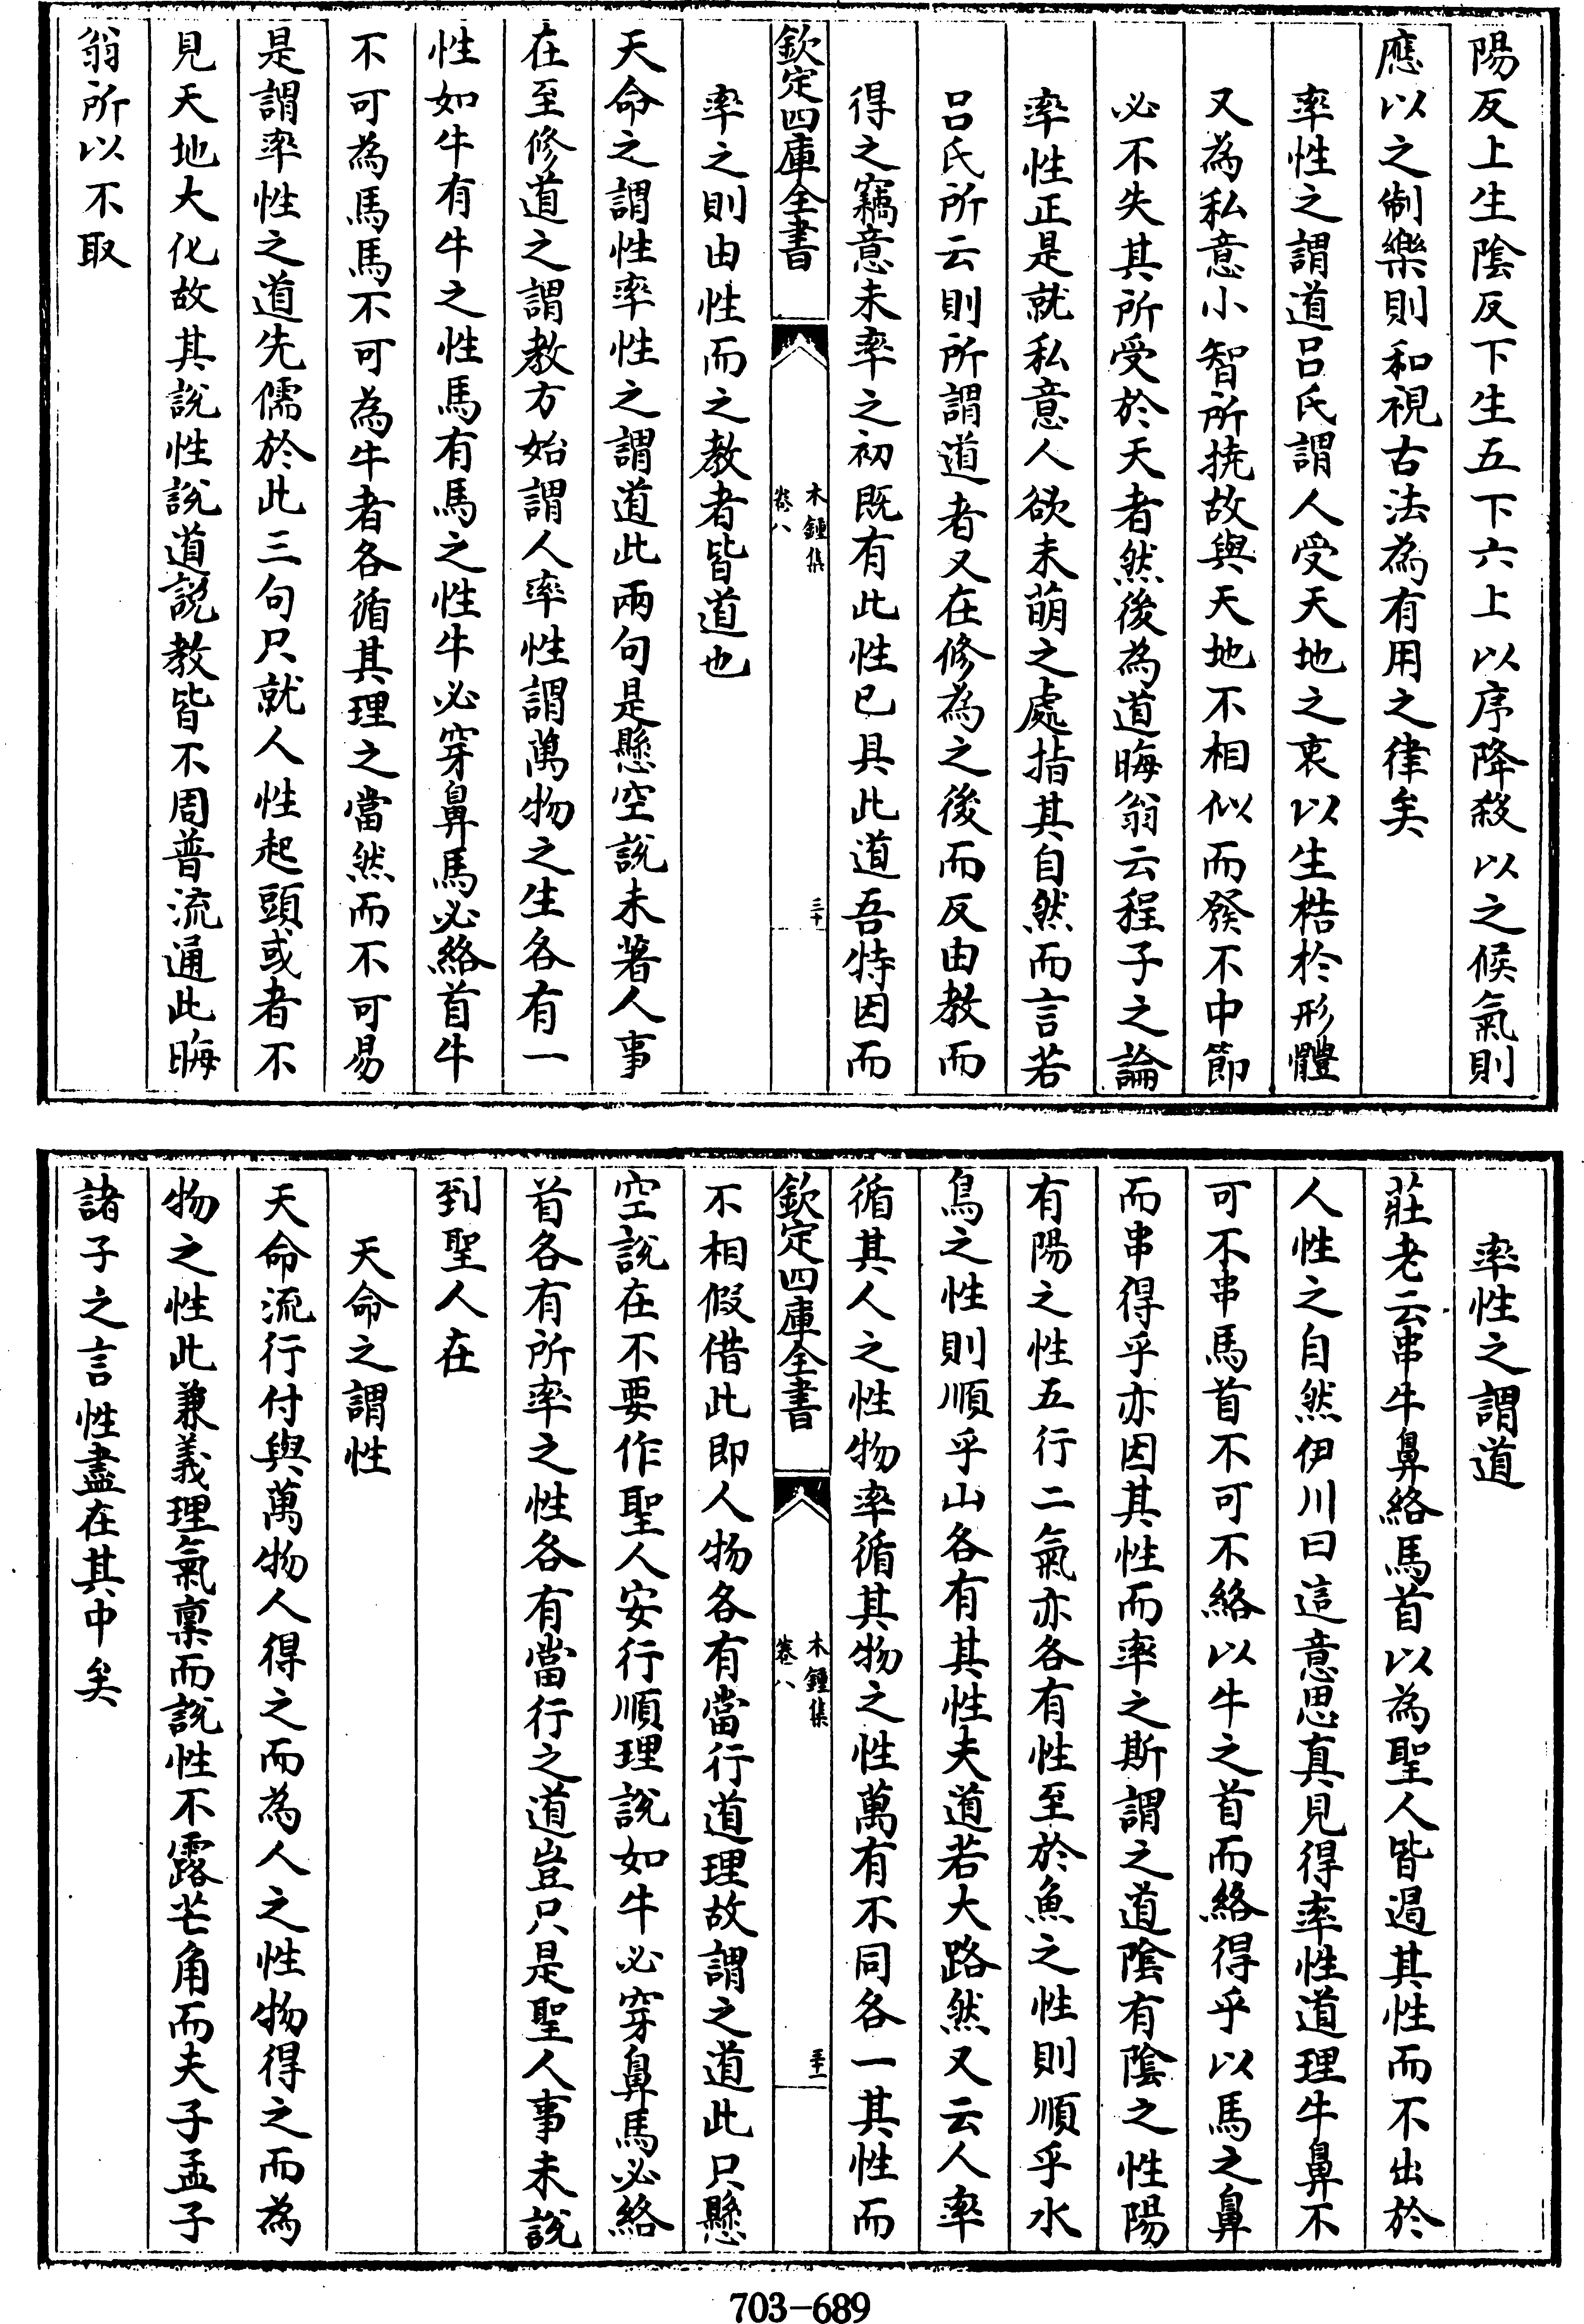 陽反上生陰反下生五下六上以序降殺以之候氣則
應以之制樂則和視古法為有用之律矣
率性之謂道吕氏謂人受天地之衷以生梏於形體
又為私意小智所撓故與天地不相似而發不中節
必不失其所受於天者然後為道晦翁云程子之論
率性正是就私意人欲未萌之處指其自然而言若
吕氏所云則所謂道者又在修為之後而反由教而
得之竊意未率之初既有此性已具此道吾特因而
欽定四庫全書
木鍾集
卷八
三十
率之則由性而之教者皆道也
天命之謂性率性之謂道此兩句是懸空說未著人事
在至修道之謂教方始謂人率性謂萬物之生各有一
性如牛有牛之性馬有馬之性牛必穿鼻馬必絡首牛
不可為馬馬不可為牛者各循其理之當然而不可易
是謂率性之道先儒於此三句只就人性起頭或者不
見天地大化故其說性說道說教皆不周普流通此晦
翁所以不取
率性之謂道
莊老云串牛鼻絡馬首以為聖人皆遏其性而不出於
人性之自然伊川曰這意思真見得率性道理牛鼻不
可不串馬首不可不絡以牛之首而絡得乎以馬之鼻
而串得乎亦因其性而率之斯謂之道陰有陰之性陽
有陽之性五行二氣亦各有性至於魚之性則順乎水
鳥之性則順乎山各有其性夫道若大路然又云人率
循其人之性物率循其物之性萬有不同各一其性而
欽定四庫全書
木鍾集
卷八
三十一
不相假借此即人物各有當行道理故謂之道此只懸
空說在不要作聖人安行順理說如牛必穿鼻馬必絡
首各有所率之性各有當行之道豈只是聖人事未說
到聖人在
天命之謂性
天命流行付與萬物人得之而為人之性物得之而為
物之性此兼義理氣禀而說性不露芒角而夫子孟子
諸子之言性盡在其中矣
703-689